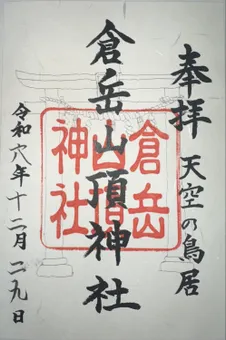 奉拝 天空の鳥居
倉岳山頂神社
倉岳
山頂
神社
令和六年十二月二九日